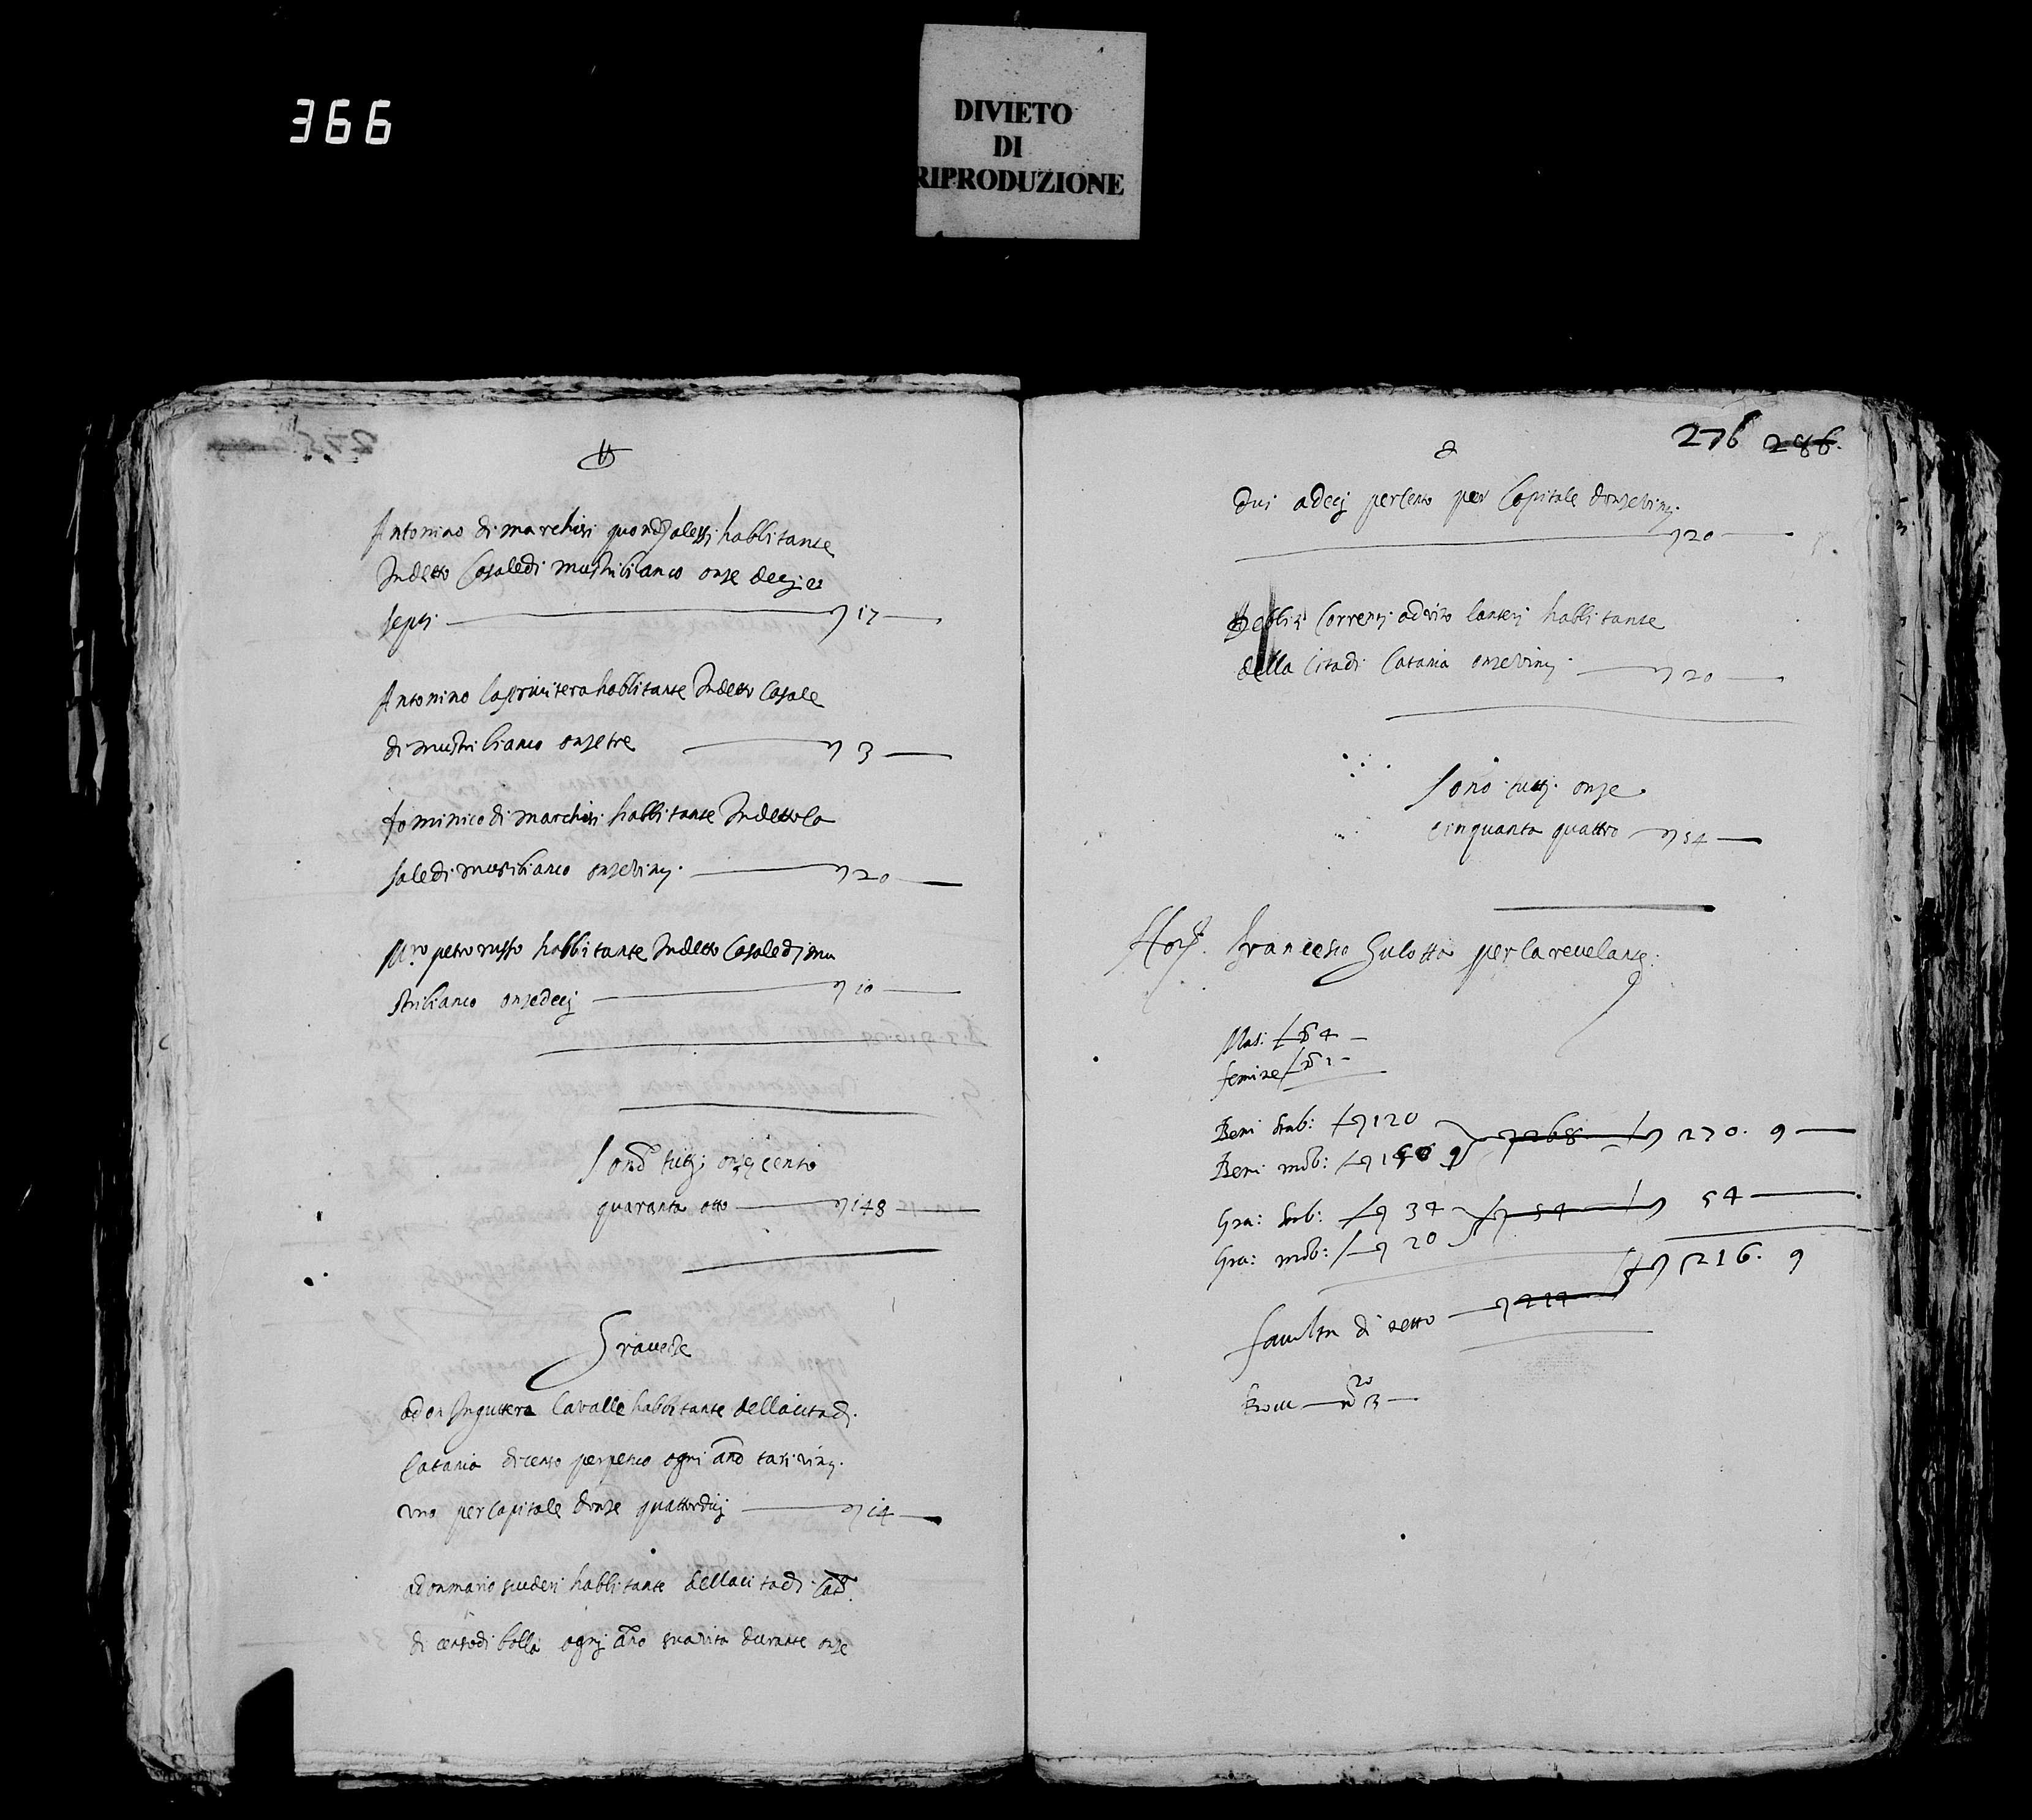 366
DIVIETO
DI
RIPRODUZIONE
Antonino di marchisi quondam alessi habbitante
Indetto Casaledi mustribianco onze decj et
septi 17
Antonino habbitante Indetto Casale
di mustribianco onze tre 3
Dominico di marchisi habbitante Indetto Ca
saledi mustribianco onzevinti 20
Mro petro russo habbitante Indetto Casaledi mu
stribianco onzedecj 10
Sono tutti onze cento
quaranta otto 148
Gravezze
adon Inguterra Cavalle habbitante dellacitadi
Catania dicenso perpetuo ogni anno tari vinti
uno per capitale donze quattordicj 14
adonmario scuderi habbitante dellacitadi Cat.
di censodi bolla ognj anno suavita durante onze
276 286.
dui adecj percento per Capitale donzevinti
20
Debbiti Correnti advito lanteri habbitante
della Citadi Catania onzevinti 20
Sono tutti onze
cinquanta quattro 54
Francesco Gulotta per la revelante
Mas: no 4
femine no 2
Beni stab: 120
Beni mob: 150 9 268 270. 9
Gra: stab: 34 54 54
Gra: mob: 20
216. 9
facultà di netto 214
20
no 3